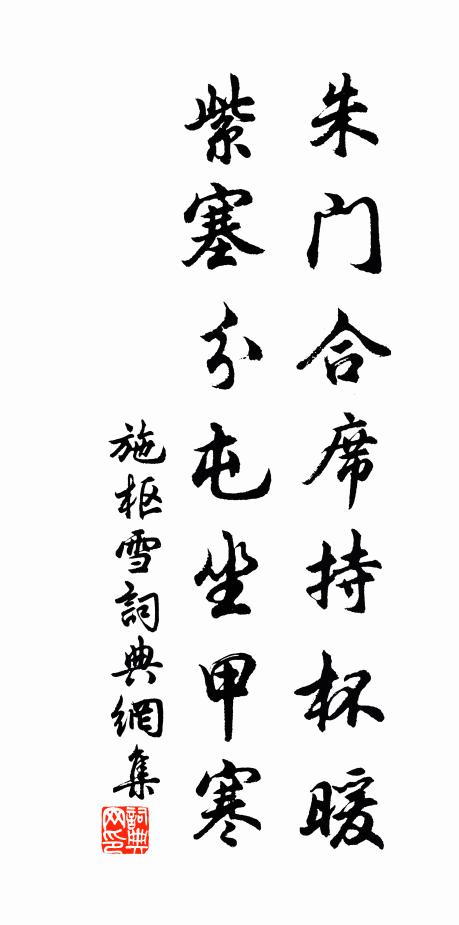 朱门合席持杯暖
紫塞分屯坐甲寒
施枢雪詞典網集
詞典网印